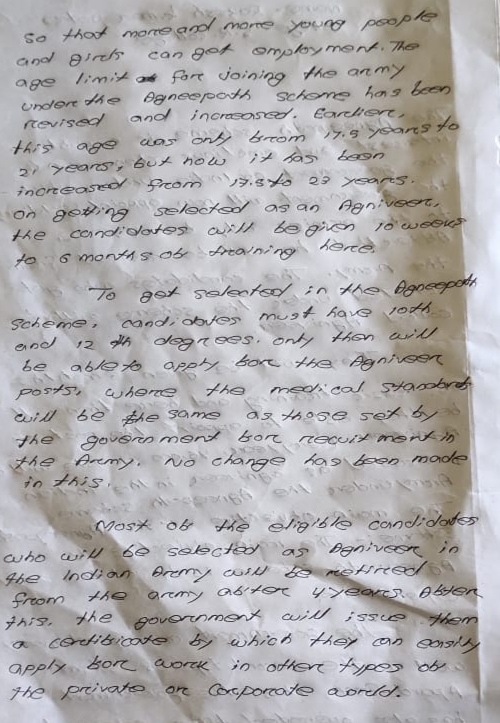 so that more and more young people
and girls can get employment. The
age limit for joining the army
under the Agneepath scheme has been
revised and increased. Earlier,
this age was only from 17.5 years to
21 years, but now it has been
increased from 17.5 to 23 years.
on getting selected as an Agniveer,
the candidates will be given 10 weeks
to 6 months of training here.
To get selected in the Agneepath
scheme, candidates must have 10th
and 12 th degrees. only then will
be able to apply for the Agniveer
posts, where the medical standards
will be the same as those set by
the government for recuitment in
the Army. No change has been made
in this.
Most of the eligible candidates
who will be selected as Agniveer in
the Indian Army will be retired
from the army after 4 years. After
this, the government will issue them
a certificate by which they can easily
apply for work in other types of
the private or corporate world.